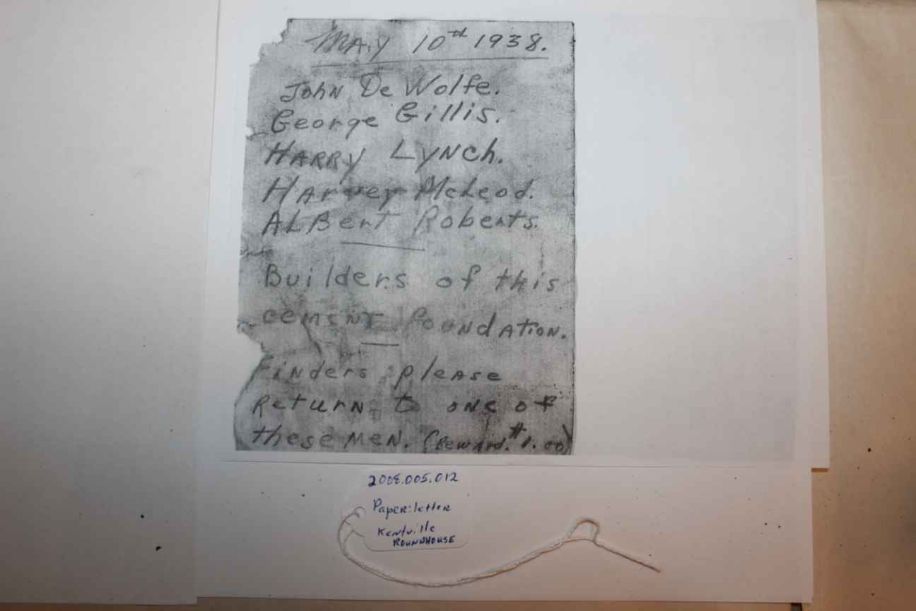 MAy 10th 1938.
John De Wolfe.
George Gillis.
HARRY LyNch.
HArvey McLeod.
ALBert Roberts.
Builders of this
cement foundATion.
Finders please
Return to one of
these MeN. (Reward. $1.00)
2008.005.012
Paper: letter
Kentville
ROUNDHOUSE